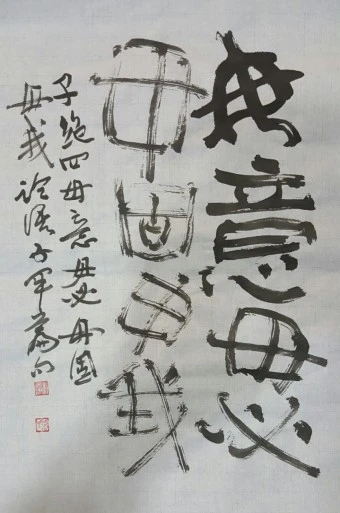 毋意毋必
毋固毋我
子絶四毋意毋必毋固
毋我论语子军书